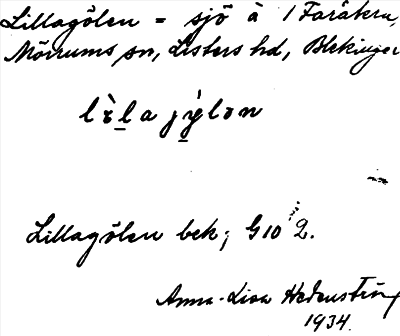 Lillagölen = sjö å 1 Faråkra,
Mörrums sn, Listers hd, Blekinge
lila jylon
Lillagölen bek; G10 2.
Anna-Lisa Hedenström
1934.